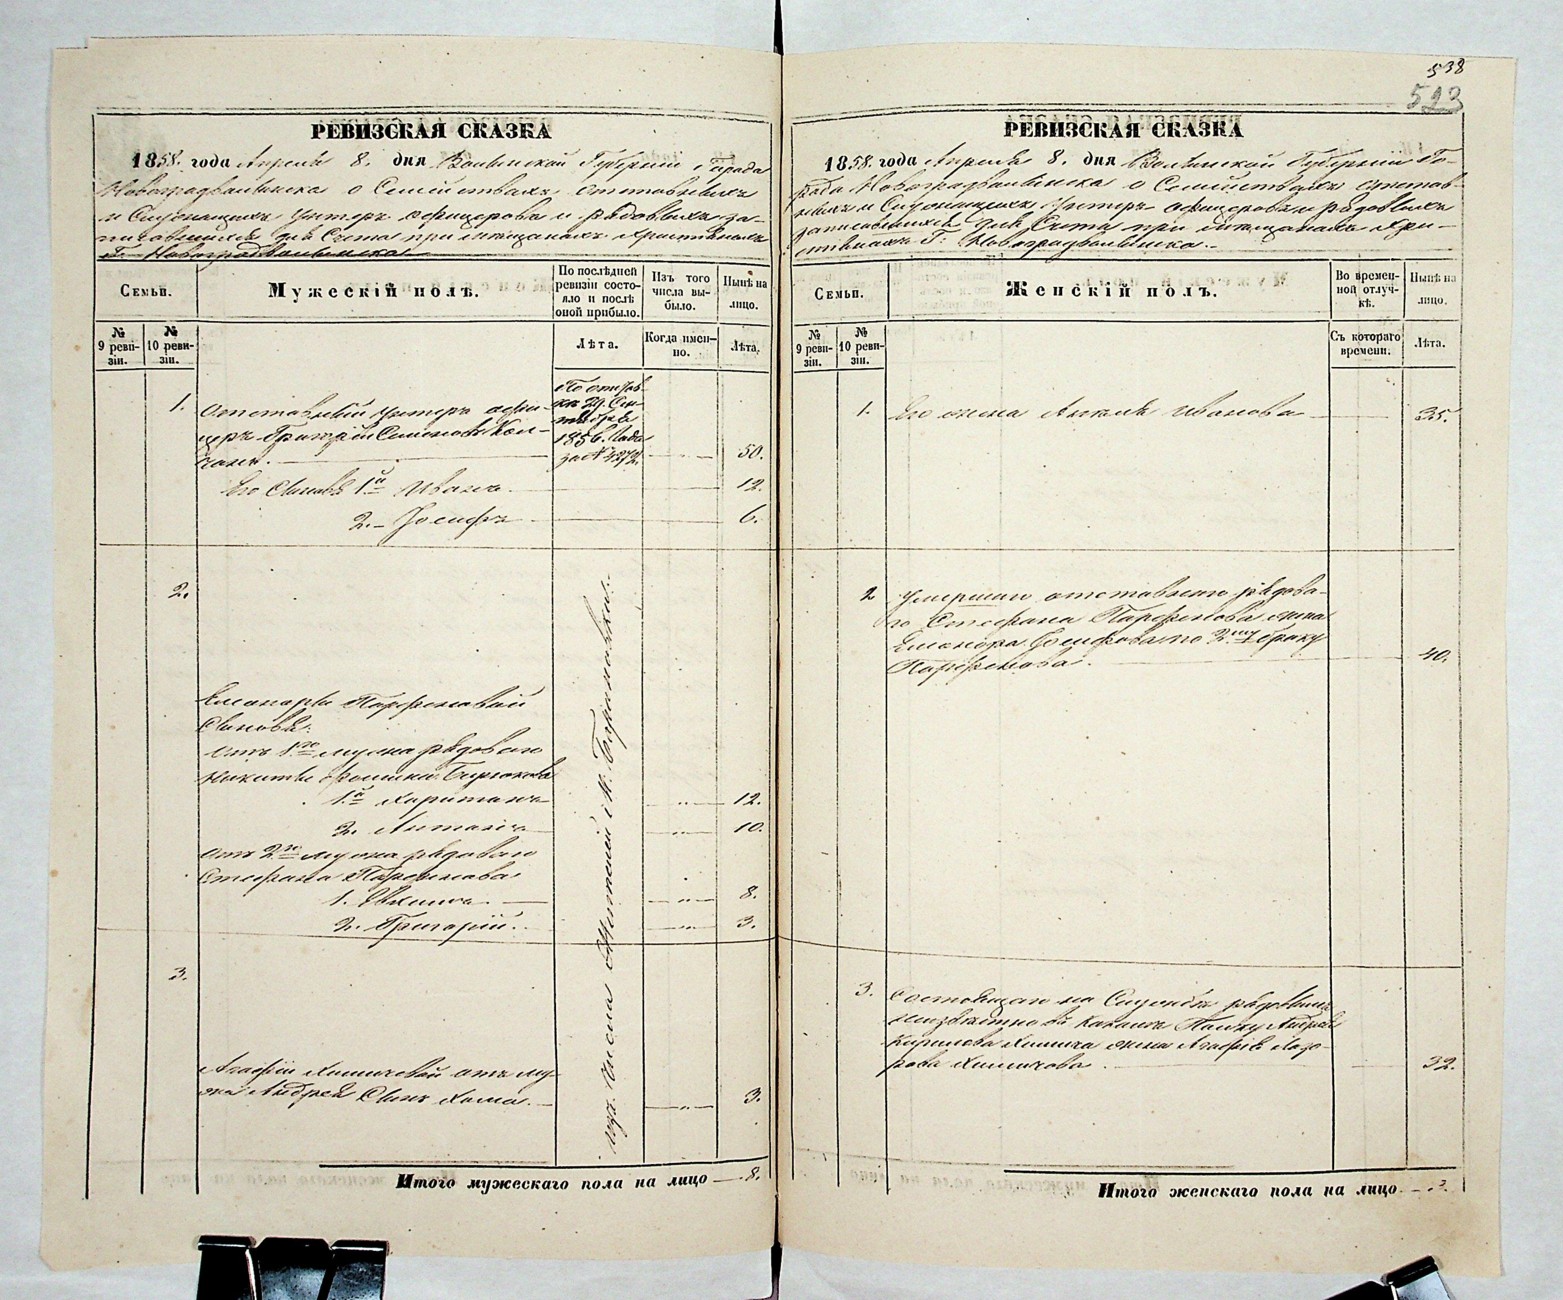 538
523
РЕВИЗСКАЯ СКАЗКА
1858. года Апреля 8. дня Волынской Губерніи Города
Новоградволынска о Семействахъ отставныхъ
и Служащихъ Унтеръ офицеровъ и рядовыхъ за-
писавшихся для Счета при мещанахъ христіянахъ
Г. Новоградволынска
Семьи.
Мужескій полъ.
По послѣдней
ревизіи состо-
яло и послѣ
оной прибыло.
Изъ того
числа вы-
было.
Нынѣ на
лицо.
№
9 реви-
зіи.
№
10 реви-
зіи.
Лѣта.
Когда имен-
но.
Лѣта.
1.
Отставный Унтеръ офи-
церъ Григорій Семеновъ
50.
По
29. Сен-
тября
1856. года
за № 4272.
Его Сыновья 1й Иванъ
12.
2. Іосифъ
6.
2.
Елеаноры Парфеновой
Сыновья:
отъ 1го мужа рядового
Никиты
1й Харитонъ
12.
2. Антонъ
10.
отъ 2го мужа рядового
Стефана Парфенова
1.
8.
2. Григорій.
3.
3.
Агафіи Химичевой отъ му-
жа Андрея Сынъ Хома.
3.
Итого мужескаго пола на лицо 8.
РЕВИЗСКАЯ СКАЗКА
1858 года Апреля 8. дня Волынской Губерніи Го-
рода Новоградволынска о Семействахъ отстав-
ныхъ и Служащихъ Унтеръ офицеровъ и рядовыхъ
записавшихся для Счета при мещанахъ хри-
стіянахъ Г. Новоградволынска.
Семьи.
Женскій полъ.
Во времен-
ной отлуч-
кѣ.
Нынѣ на
лицо.
№
9 реви-
зіи.
№
10 реви-
зіи.
Съ котораго
времени.
Лѣта.
1.
Его жена Иванова
35.
2
Умершаго отставного рядово-
го Стефана Парфенова жена
Елеанора Іосифова по 2му браку
Парфенова.
40.
3.
Состоящаго на Службѣ рядовымъ
неизвѣстно въ какомъ Полку Андрея
Кирилова Химича жена Агафія Лазо-
рова Химичова.
32.
Итого женскаго пола на лицо 3.